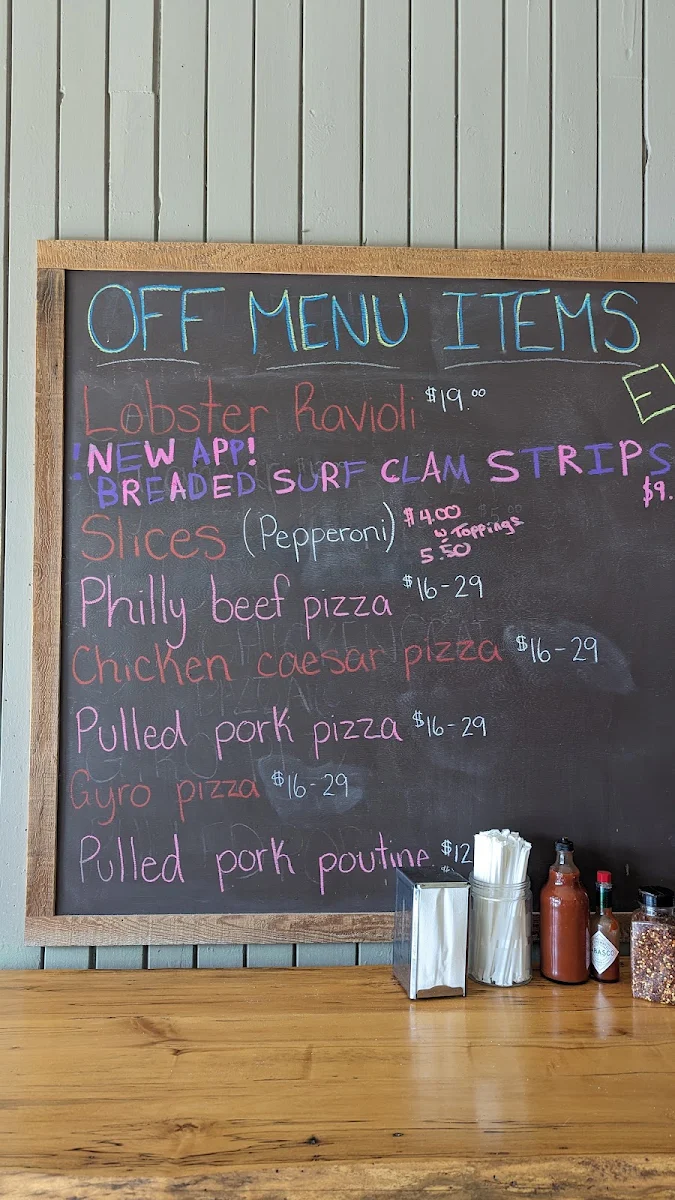 OFF MENU ITEMS
Lobster Ravioli $19.00
!NEW APP!
BREADED SURF CLAM STRIPS
$9.
Slices (Pepperoni) $4.00
w Toppings
5.50
Philly beef pizza $16-29
Chicken caesar pizza $16-29
Pulled pork pizza $16-29
Gyro pizza $16-29
Pulled pork poutine $12